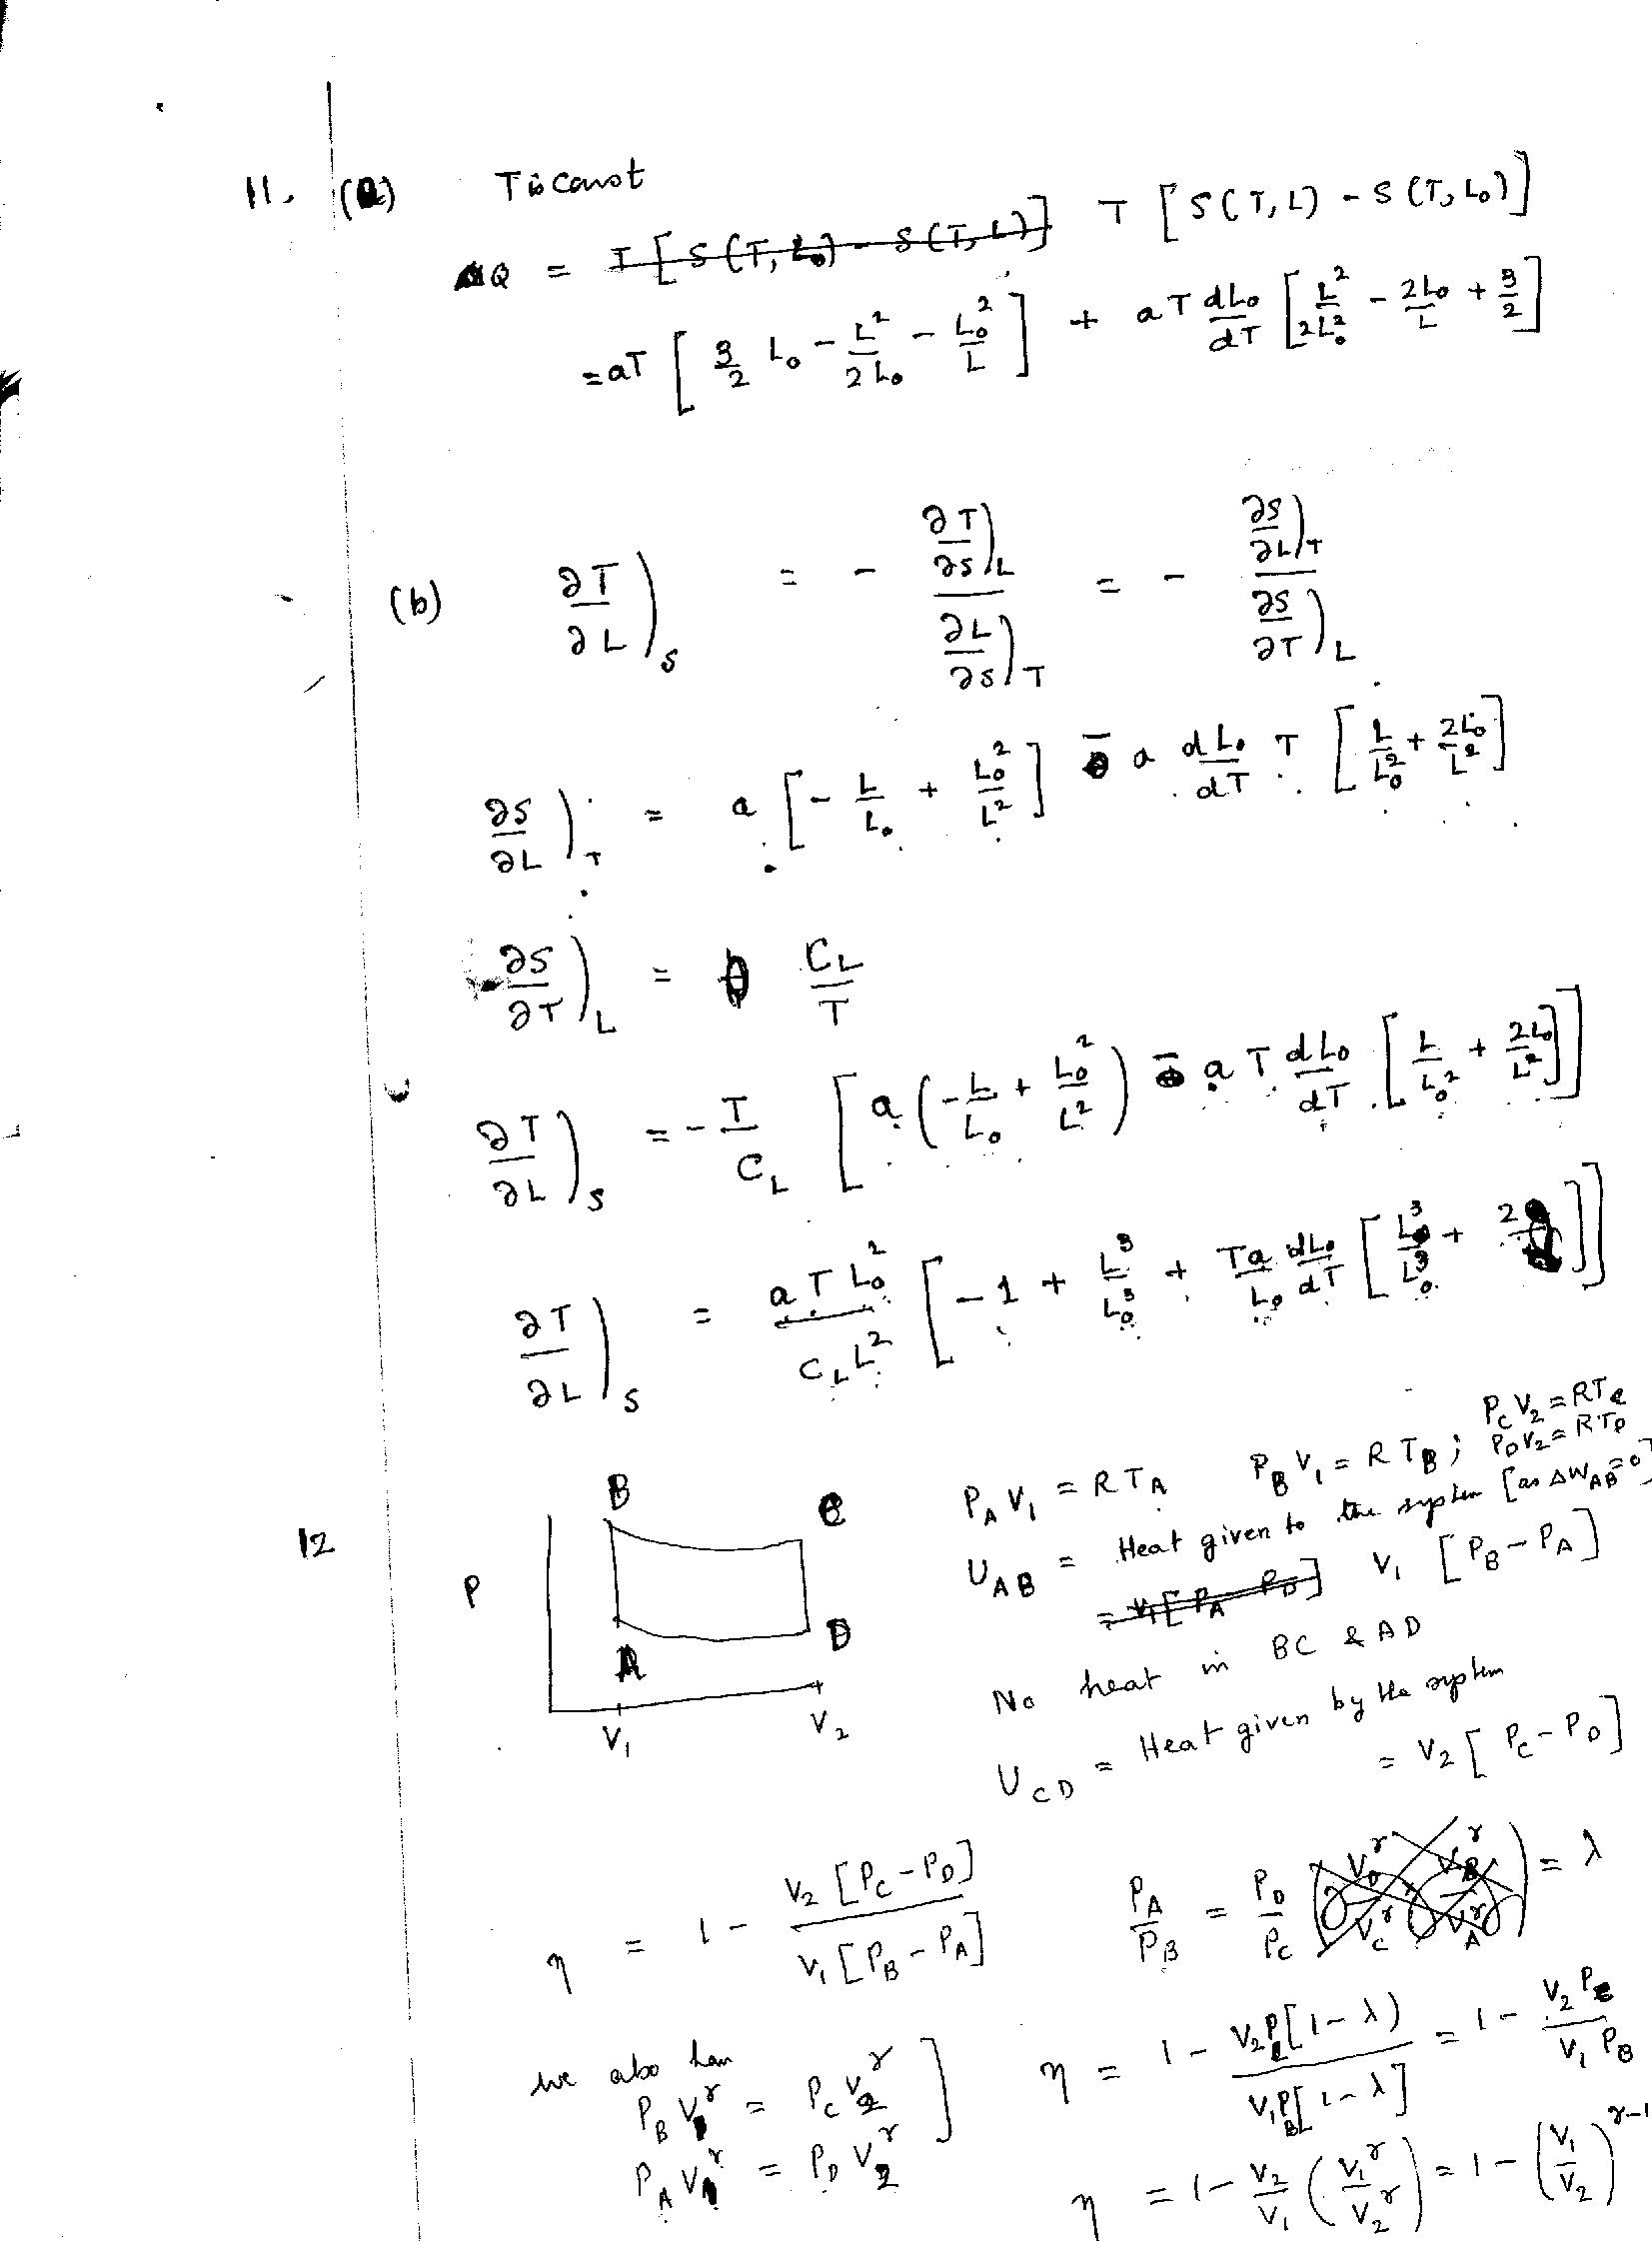 11. (a) T is const
ΔQ = T [S(T, L₀) - S(T, L)] T [S(T, L) - S(T, L₀)]
= aT [3/2 L₀ - L²/2L₀ - L₀²/L] + aT dL₀/dT [L²/2L₀² - 2L₀/L + 3/2]
(b) ∂T/∂L)_S = - ∂T/∂S)_L / ∂L/∂S)_T = - ∂S/∂L)_T / ∂S/∂T)_L
∂S/∂L)_T = a [- L/L₀ + L₀²/L²] - a dL₀/dT T [L/L₀² + 2L₀/L²]
∂S/∂T)_L = C_L/T
∂T/∂L)_S = - T/C_L [a (- L/L₀ + L₀²/L²) - a T dL₀/dT [L/L₀² + 2L₀/L²]]
∂T/∂L)_S = a T L₀²/C_L L² [-1 + L³/L₀³ + Ta/L₀ dL₀/dT [L³/L₀³ + 2]]
12
P
B
C
A
D
V₁
V₂
P_A V₁ = R T_A P_B V₁ = R T_B ; P_C V₂ = R T_C
P_D V₂ = R T_D
U_AB = Heat given to the system [as ΔW_AB = 0]
= V₁ [P_A P_D] V₁ [P_B - P_A]
No heat in BC & AD
U_CD = Heat given by the system
= V₂ [P_C - P_D]
η = 1 - V₂ [P_C - P_D] / V₁ [P_B - P_A] P_A/P_B = P_D/P_C = λ
we also have
P_B V₁^γ = P_C V₂^γ
P_A V₁^γ = P_D V₂^γ ]
η = 1 - V₂P_C[1 - λ) / V₁P_B[1 - λ] = 1 - V₂ P_C / V₁ P_B
η = 1 - V₂/V₁ (V₁^γ/V₂^γ) = 1 - (V₁/V₂)^γ-1